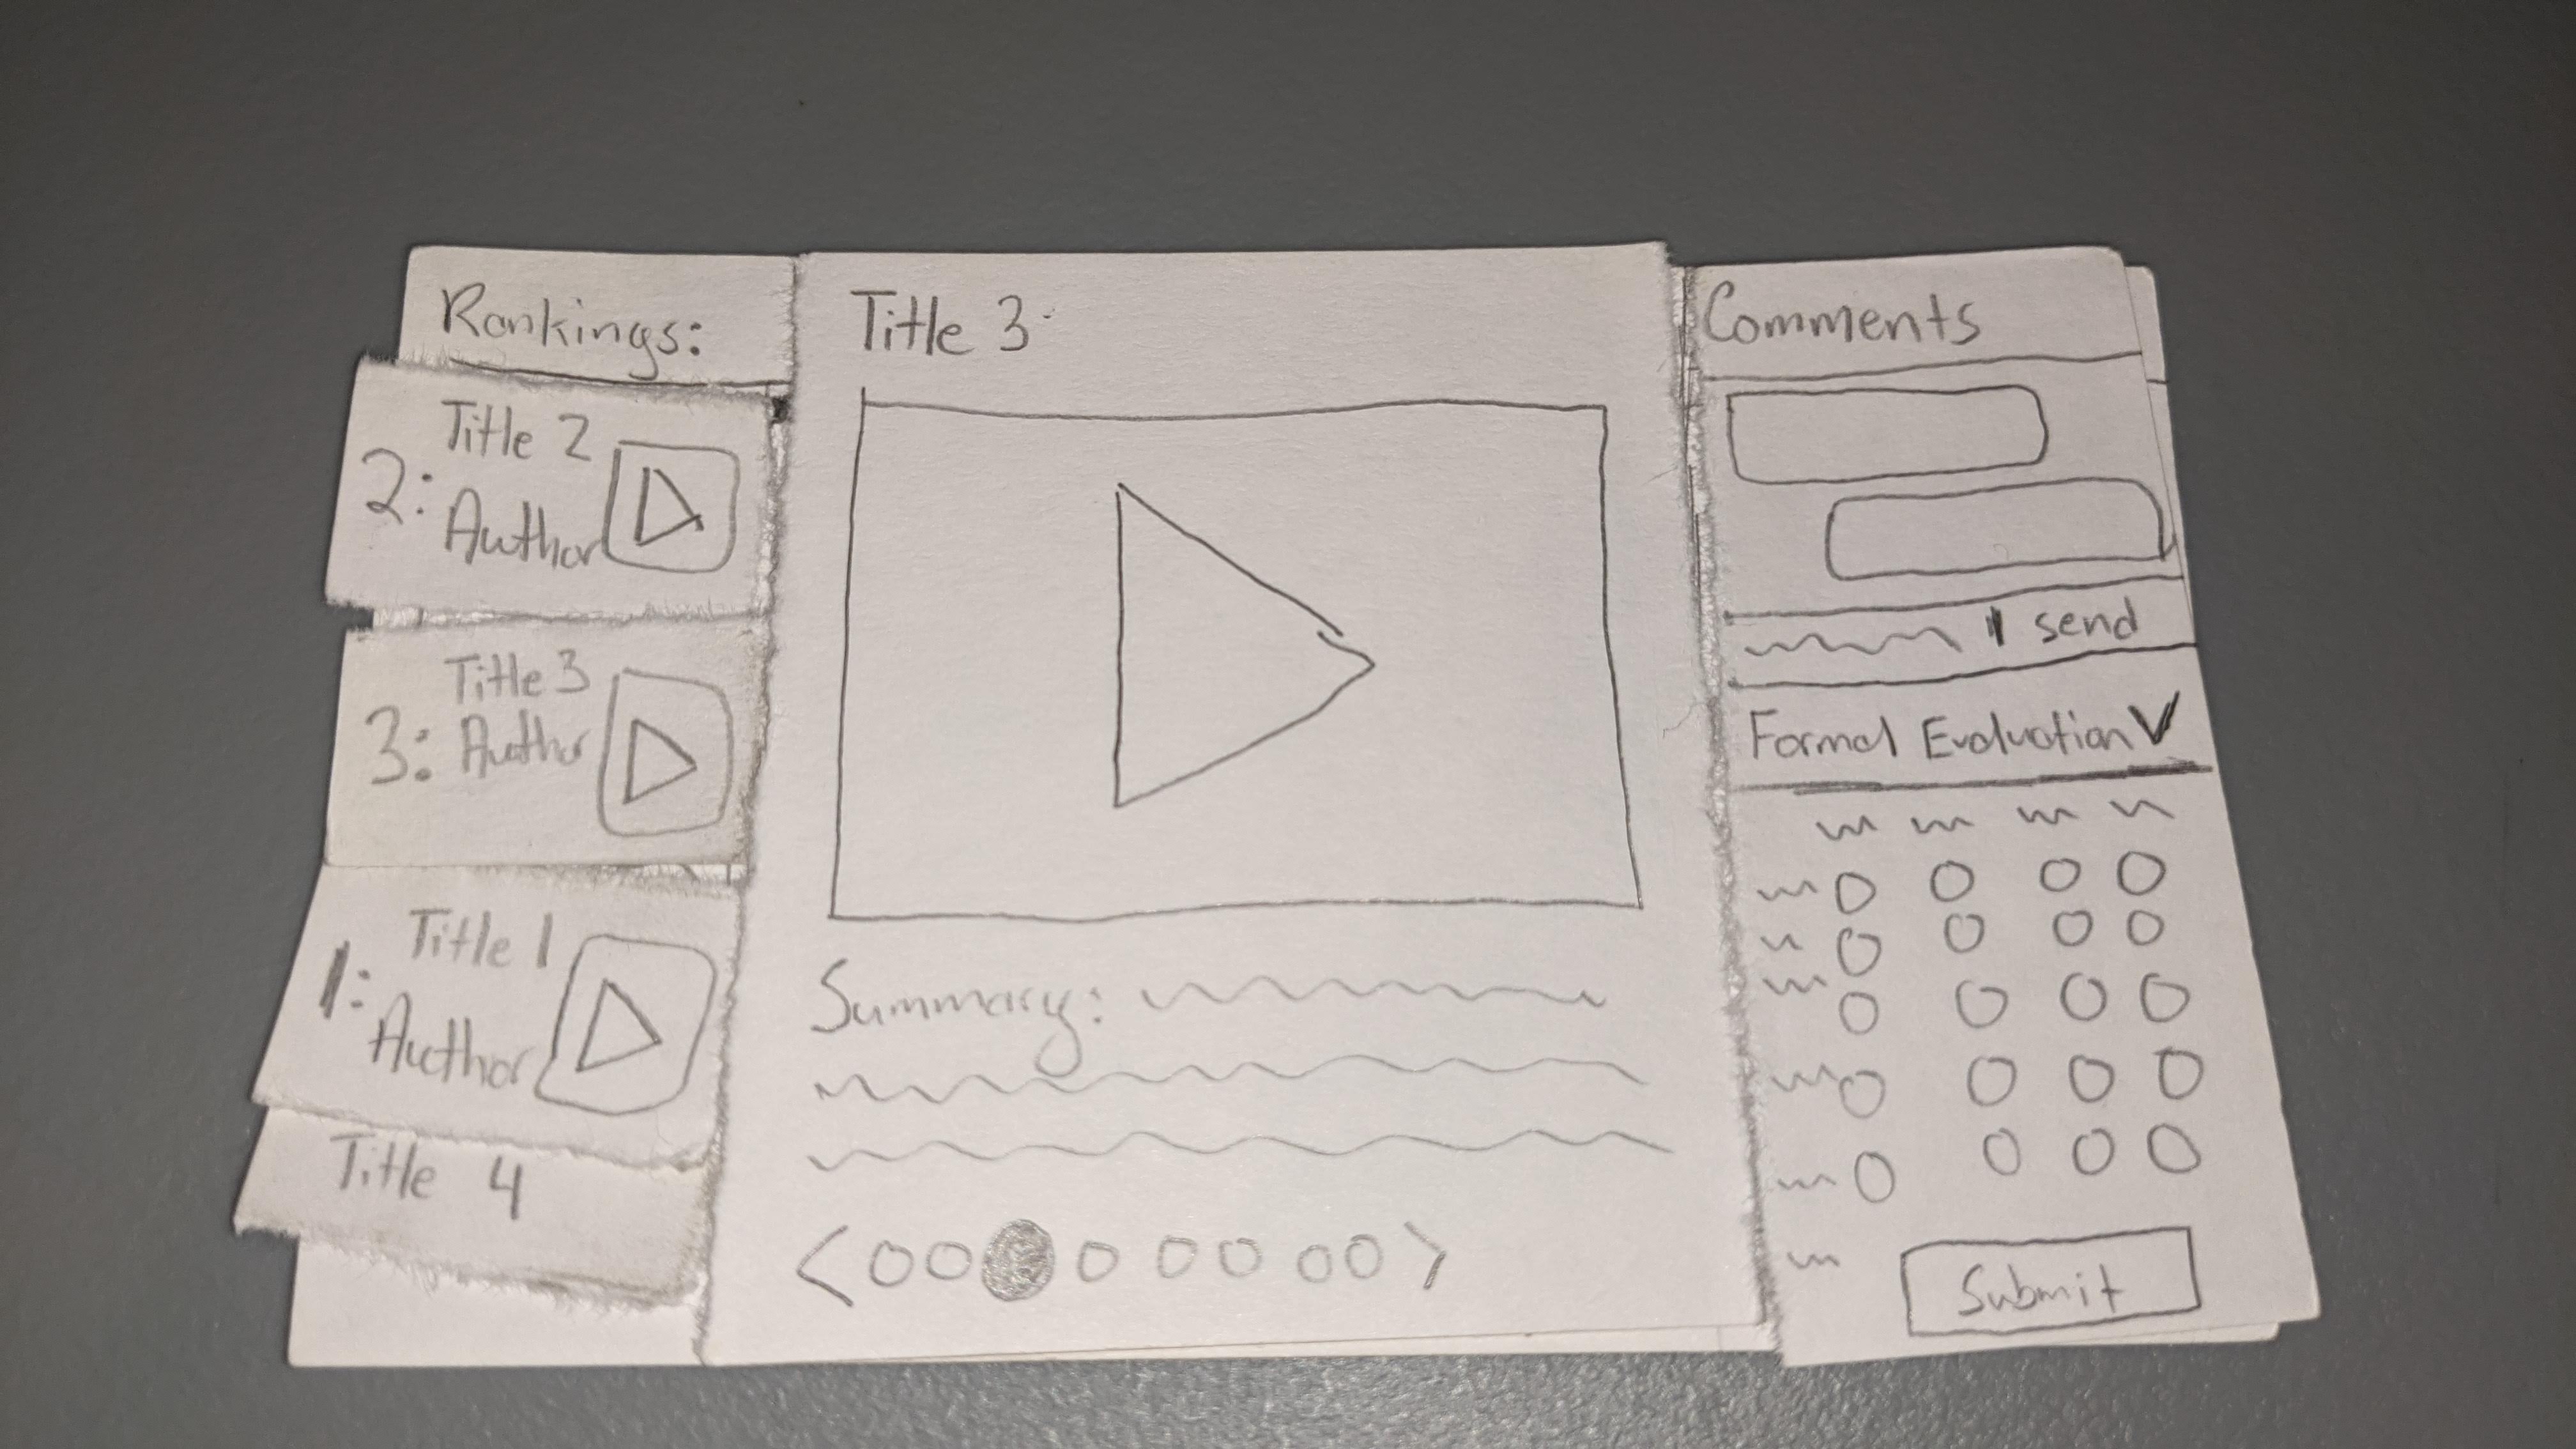 Rankings:
2:
Title 2
Author
3:
Title 3
Author
1:
Title 1
Author
Title 4
Title 3
Summary:
Comments
send
Formal Evaluation
Submit